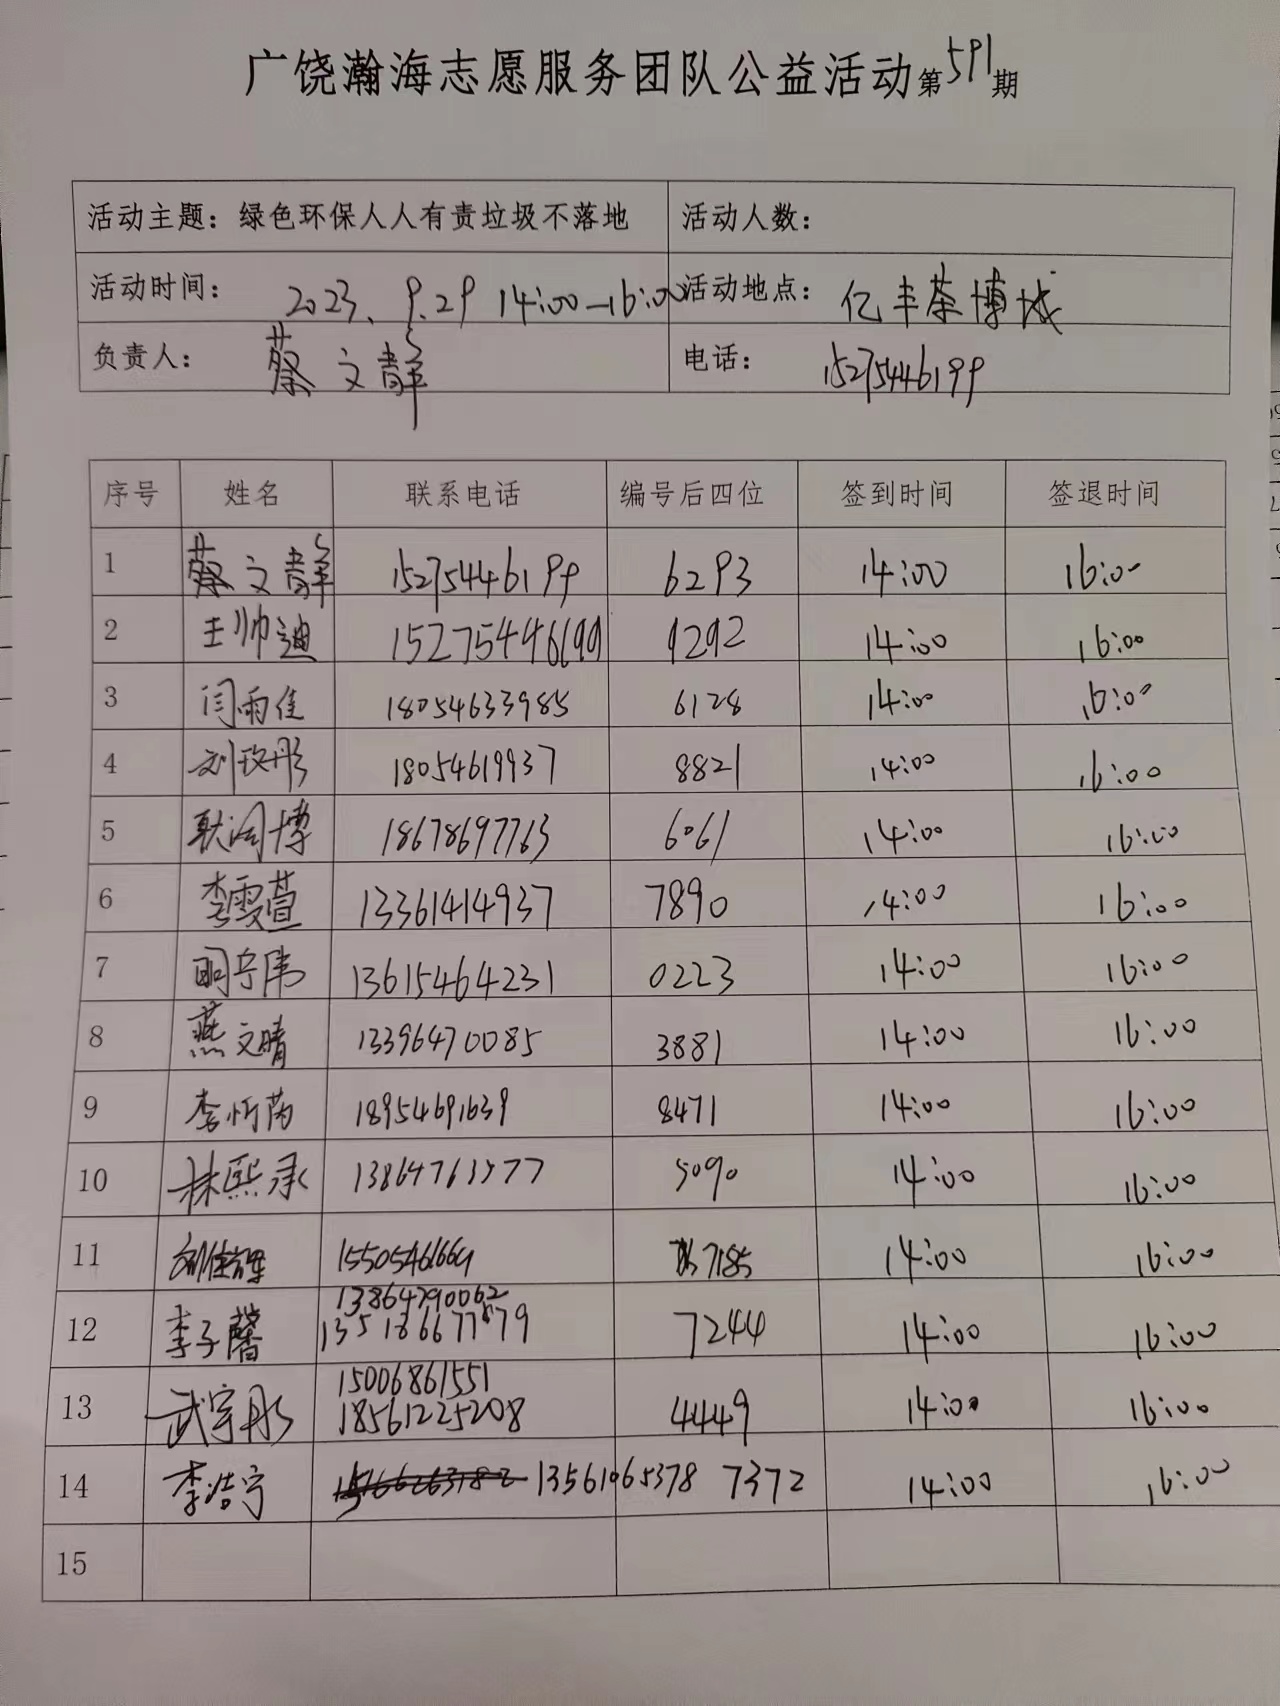 广饶瀚海志愿服务团队公益活动第591期
活动主题：绿色环保人人有责垃圾不落地 活动人数：
活动时间： 2023.9.29 14:00-16:00 活动地点： 亿丰茶博城
负责人： 蔡文群 电话： 15275446199
序号 姓名 联系电话 编号后四位 签到时间 签退时间
1 蔡文群 15275446199 6293 14:00 16:00
2 王帅迪 15275446199 9292 14:00 16:00
3 闫雨佳 18054633985 6128 14:00 16:00
4 刘玫彤 18054619937 8821 14:00 16:00
5 耿润博 18678697763 6061 14:00 16:00
6 李雯萱 13361414937 7890 14:00 16:00
7 明宁伟 13615464231 0223 14:00 16:00
8 燕文晴 13396470085 3881 14:00 16:00
9 李忻芮 18954691639 8471 14:00 16:00
10 林熙承 13864763577 5090 14:00 16:00
11 15505461669 7185 14:00 16:00
13864790062
12 李子馨 7244 14:00 16:00
15006861551
13 武宇彤 18561225208 4449 14:00 16:00
14 李浩宁 13561065378 7372 14:00 16:00
15